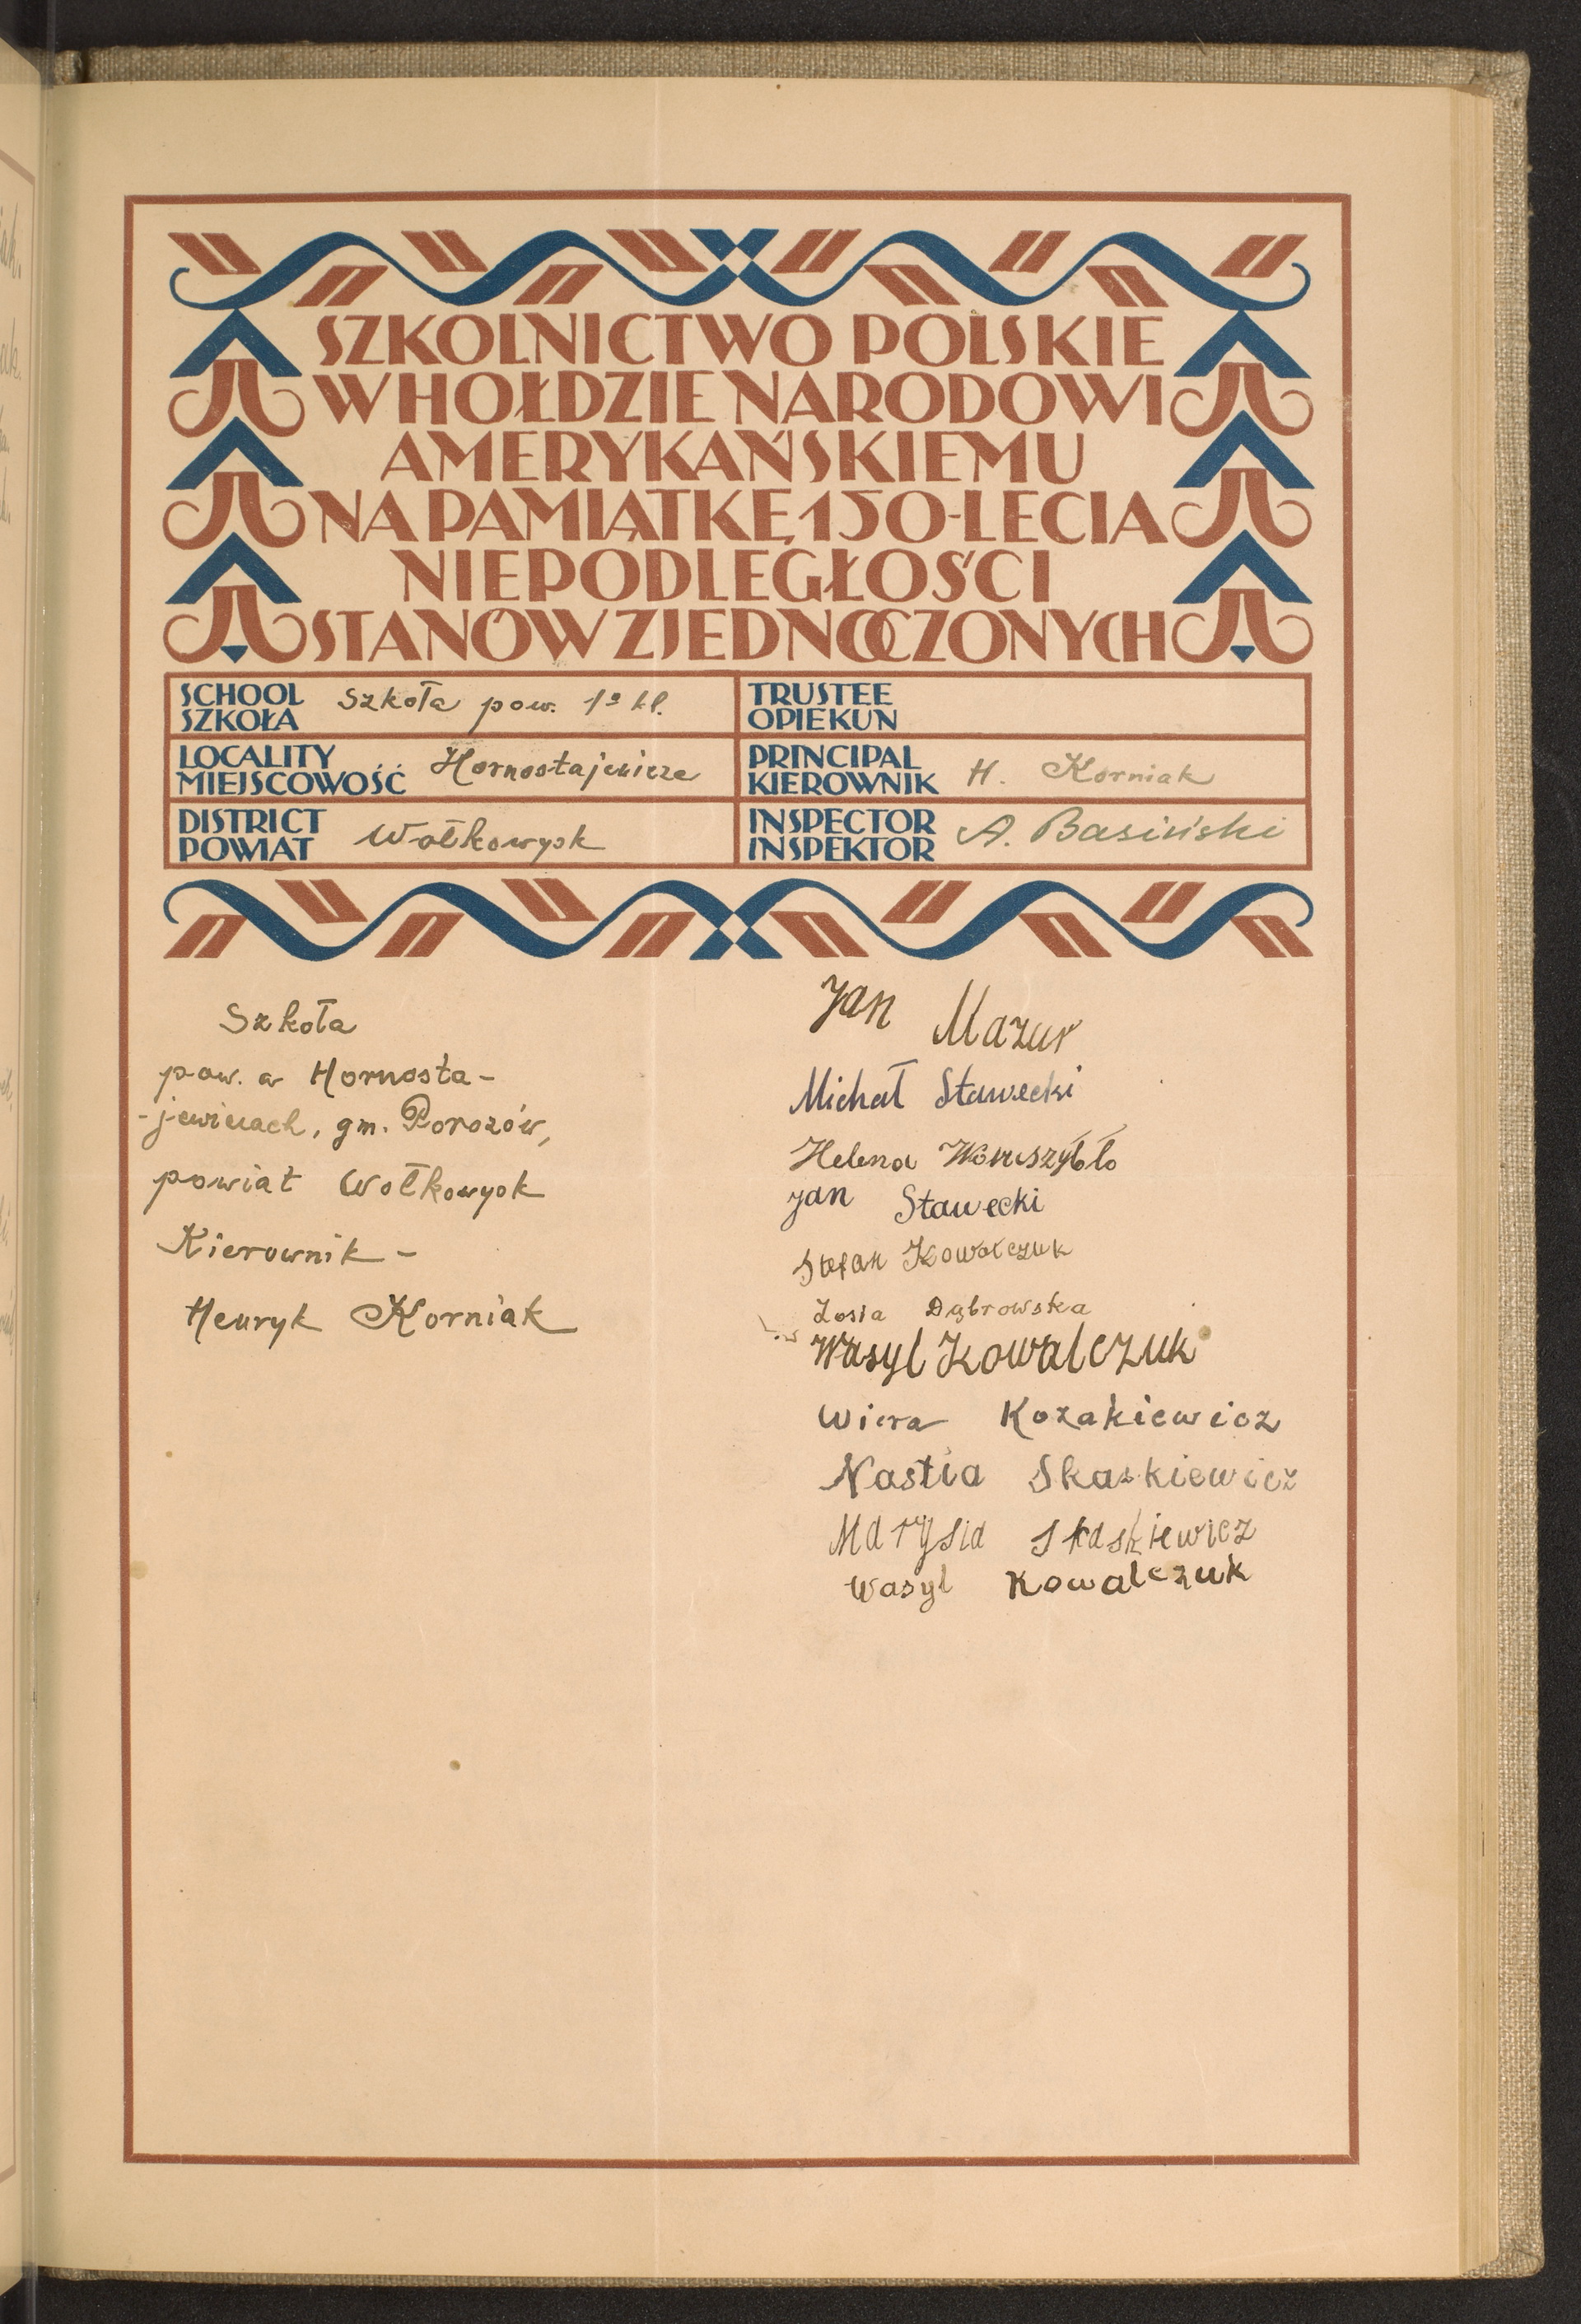 SZKOLNICTWO POLSKIE
W HOŁDZIE NARODOWI
AMERYKAŃSKIEMU
NA PAMIĄTKĘ 150-LECIA
NIEPODLEGŁOŚCI
STANÓW ZJEDNOCZONYCH
SCHOOL
SZKOŁA
Szkoła pow. 1º kl.
TRUSTEE
OPIEKUN
LOCALITY
MIEJSCOWOŚĆ
Hornostajewicze
PRINCIPAL
KIEROWNIK
H. Korniak
DISTRICT
POWIAT
Wołkowysk
INSPECTOR
INSPEKTOR
A. Basiński
Szkoła
pow. w Hornosta-
-jewicach, gm. Porozów,
powiat Wołkowysk
Kierownik -
Henryk Korniak
Jan Mazur
Michał Stawecki
Helena
Jan Stawecki
Stefan Kowalczuk
Zosia Dąbrowska
Wasyl Kowalczuk
Wiera Kozakiewicz
Nastia Skaskiewicz
Marysia Skaskiewicz
Wasyl Kowalczuk